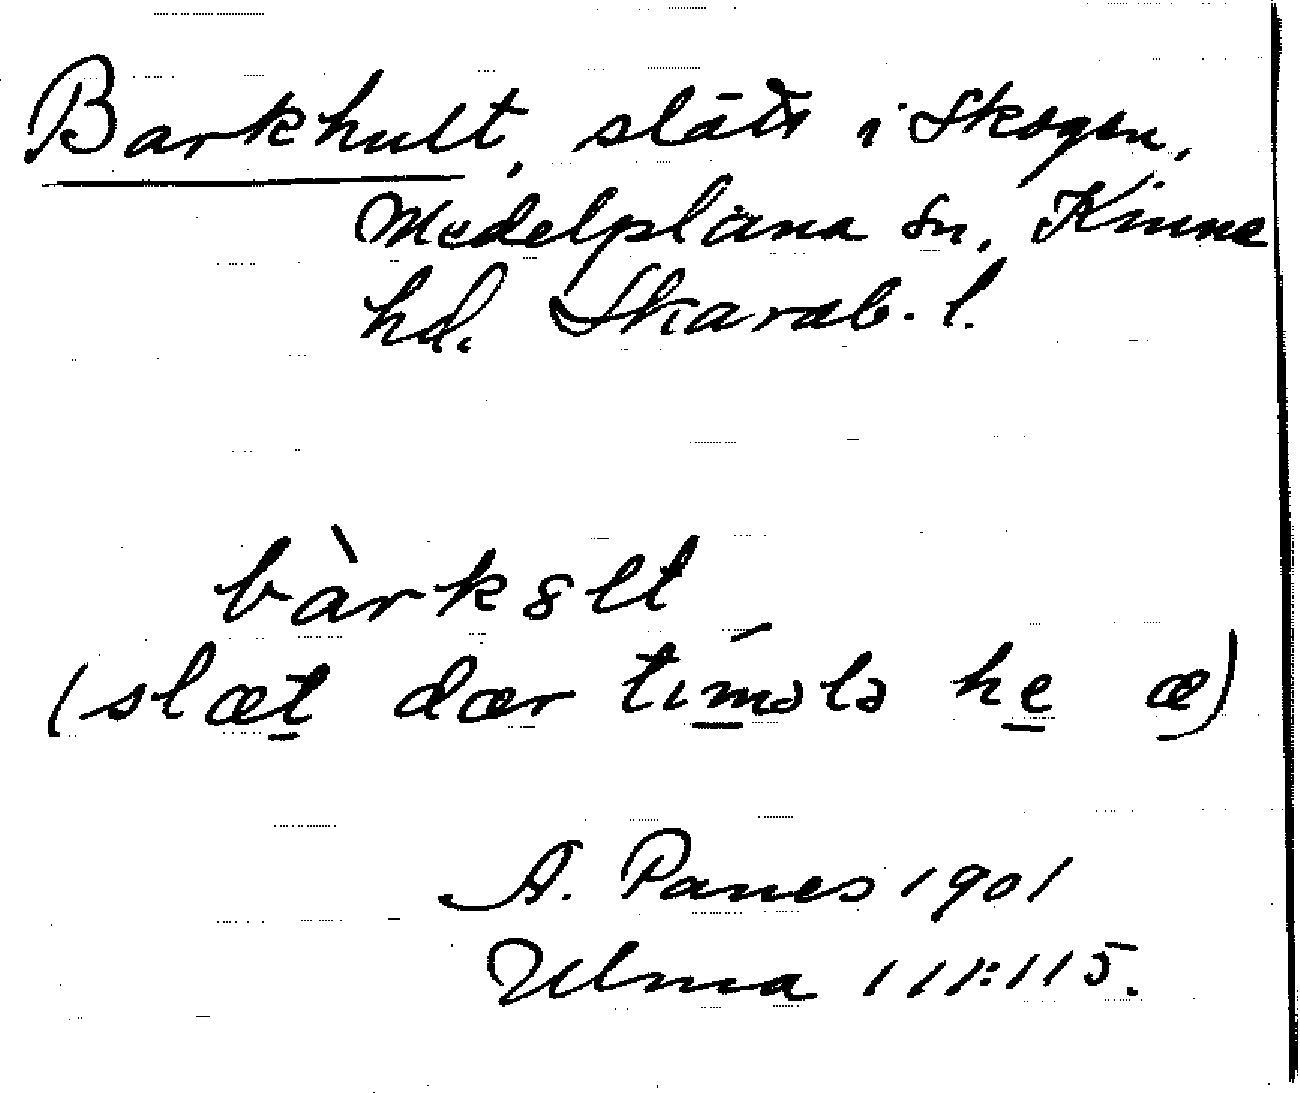 Barkhult, slätt i skogen,
Medelplana sn, Kinne
hd. Skarab. l.
bàrkslt
(slæt dær timələ he æ)
A. Panes 1901
Ulma 111:115.